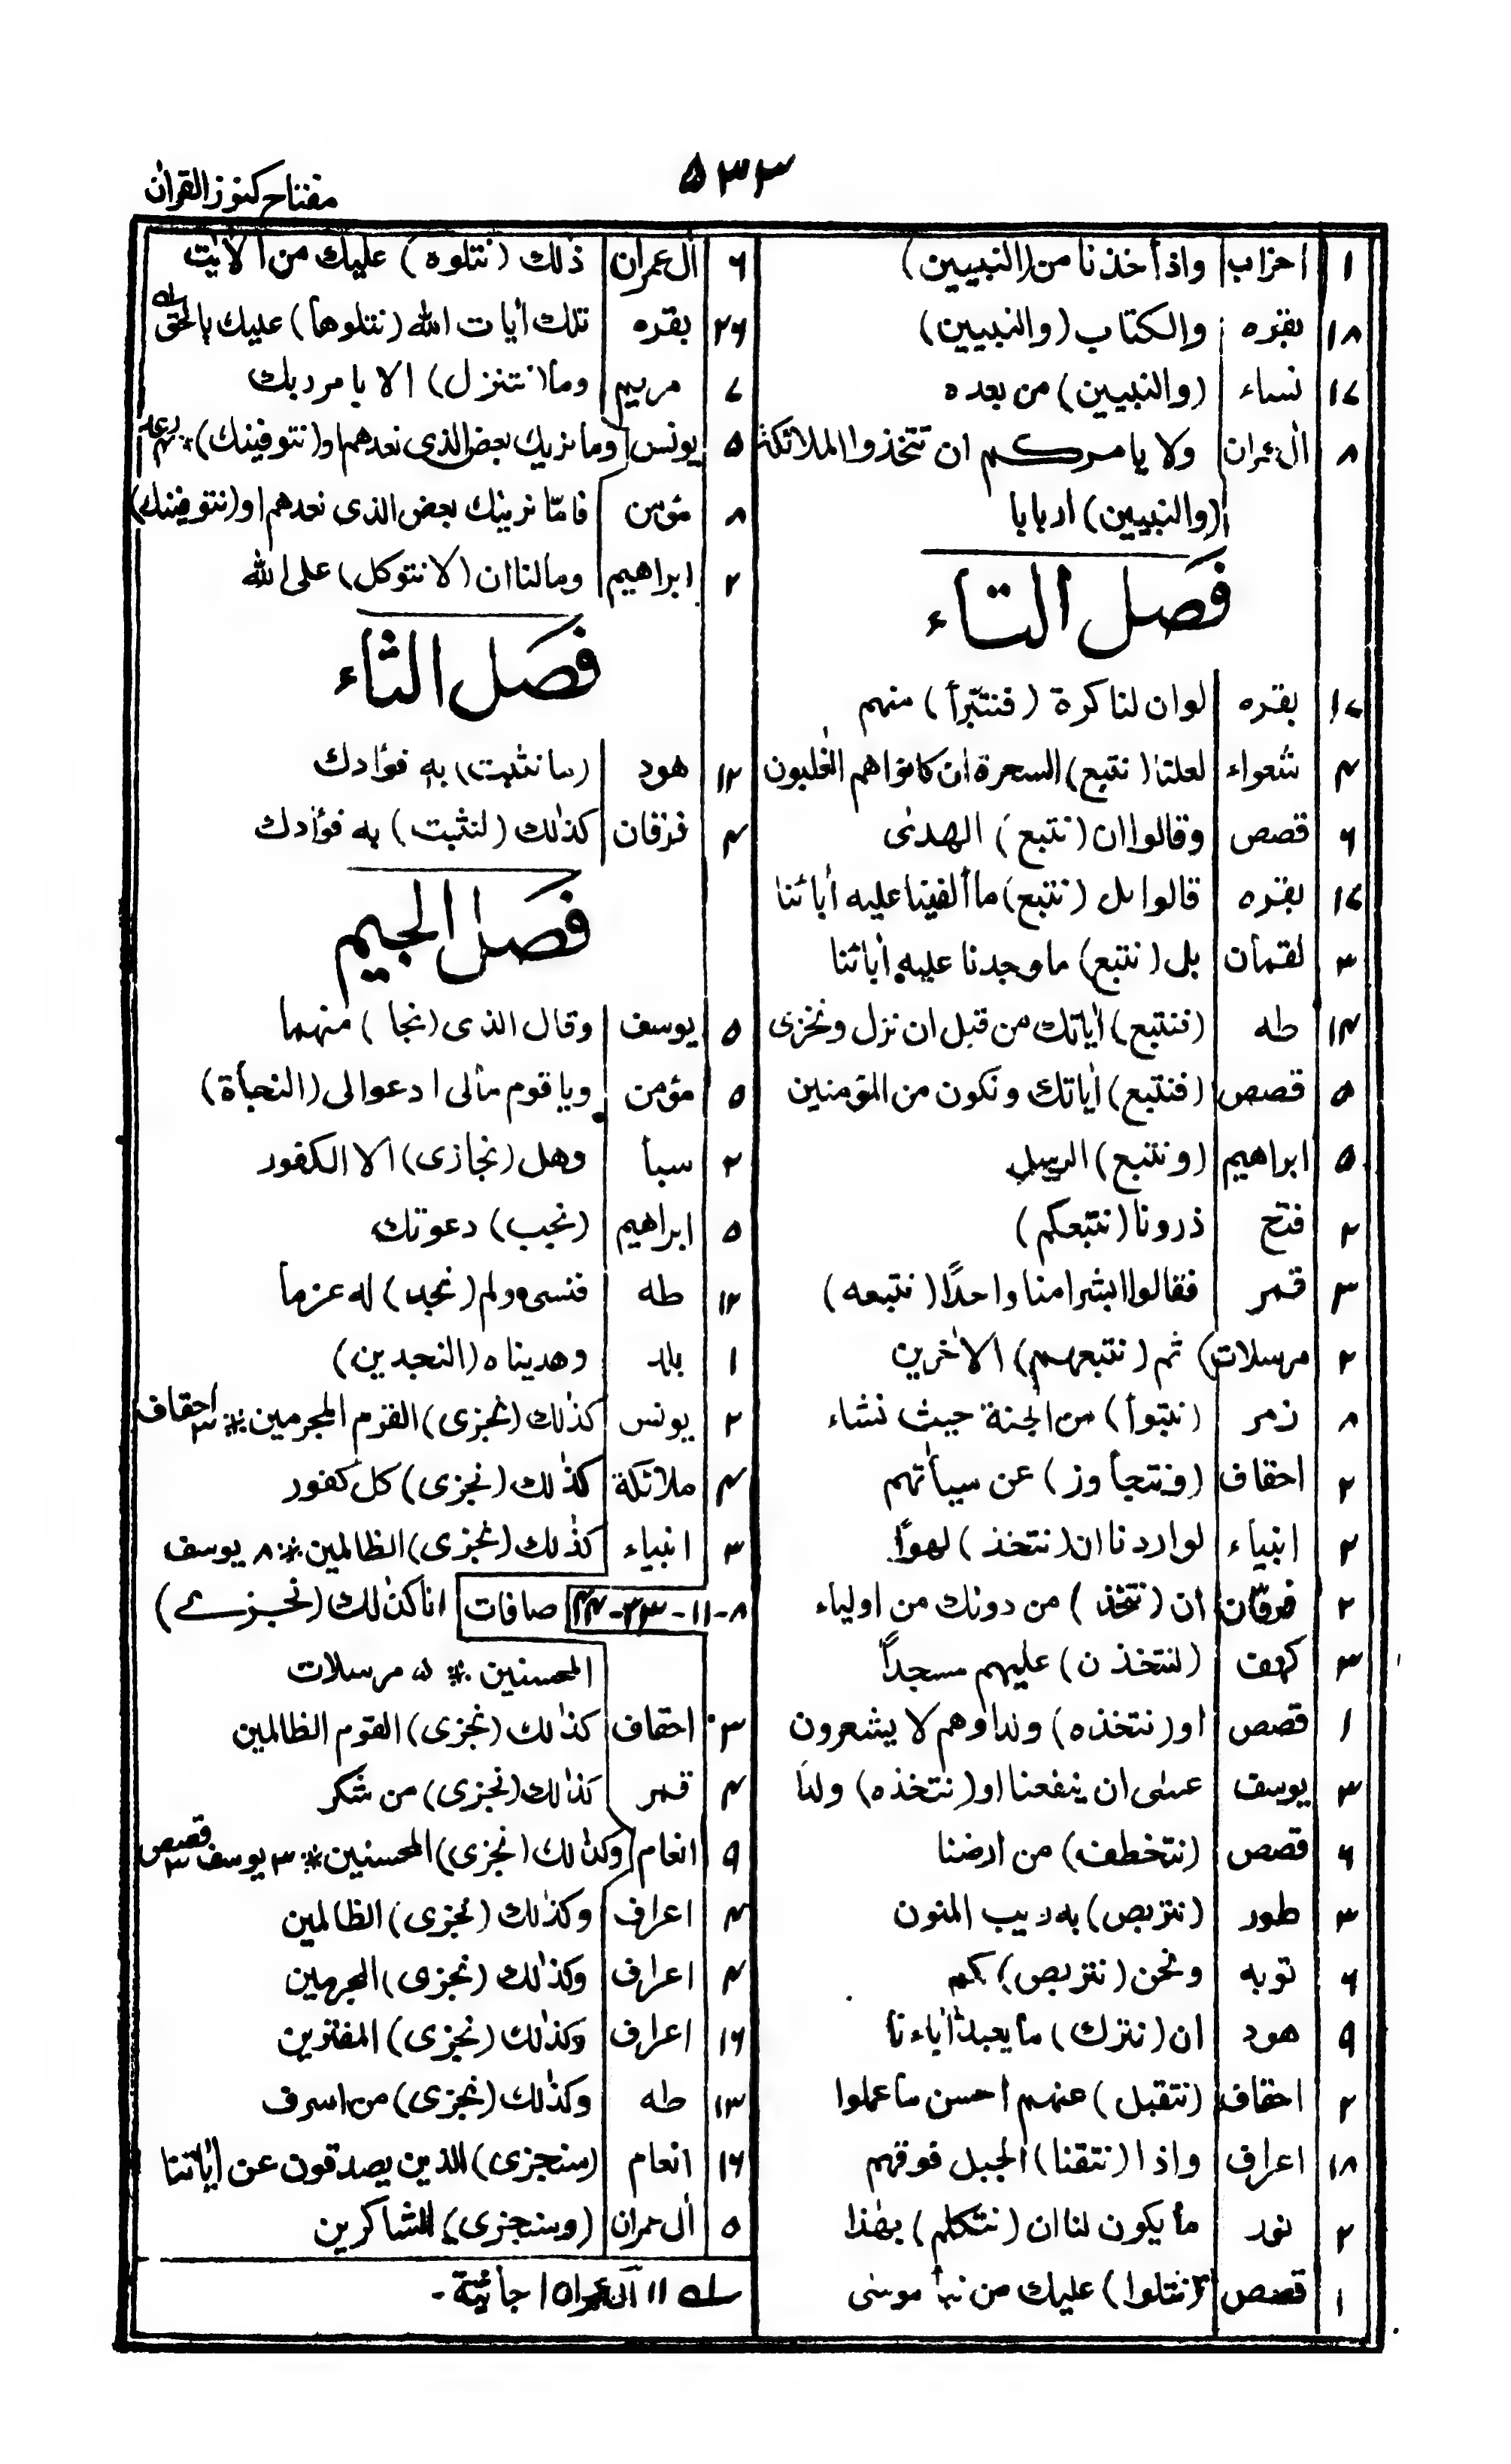 ۵۳۳
مفتاح کنوز القران
۱ احزاب واذ أخذنا من (النبیین)
۱۸ بقره والکتاب (والنبیین)
۱۷ نساء (والنبیین) من بعده
۸ اٰل عمران ولا یامرکم ان تتخذوا الملائکة
(والنبیین) اربابا
فَصل التاء
۱۷ بقره لو ان لنا کرة (فنتبّرأ) منهم
۴ شعراء لعلنا (نتبع) السحرة ان کانوا هم الغٰلبون
۶ قصص وقالوا ان (نتبع) الهدیٰ
۱۷ بقره قالوا بل (نتبع) ما ألفینا علیه أبائنا
۳ لقمان بل (نتبع) ما وجدنا علیه أبائنا
۱۴ طه (فنتبع) اٰیاتك من قبل ان نزل ونخزی
۵ قصص (فنتبع) اٰیاتك ونکون من المؤمنین
۵ ابراهیم (ونتبع) الرسل
۲ فتح ذرونا (نتبعکم)
۳ قمر فقالوا ابشرا منا واحدًا (نتبعه)
۲ مرسلات ثم (نتبعهم) الاٰخرین
۸ زمر (نتبوأ) من الجنة حیث نشاء
۲ احقاف (ونتجاوز) عن سیأتهم
۲ انبیاء لو اردنا ان (نتخذ) لهوًا
۲ فرقان ان (نتخذ) من دونك من اولیاء
۳ کهف (لنتخذن) علیهم مسجداً
۱ قصص او (نتخذه) ولدا وهم لا یشعرون
۳ یوسف عسٰی ان ینفعنا او (نتخذه) ولدا
۶ قصص (نتخطف) من ارضنا
۳ طور (نتربص) به ریب المنون
۶ توبه ونحن (نتربص) بکم
۹ هود ان (نترك) ما یعبد اٰباءنا
۲ احقاف (نتقبل) عنهم احسن ما عملوا
۱۸ اعراف واذا (نتقنا) الجبل فوقهم
۲ نور ما یکون لنا ان (نتکلم) بهٰذا
۱ قصص (نتلوا) علیك من نبأ موسٰی
۶ اٰل عمران ذٰلك (نتلوه) علیك من الاٰیٰت
۲۶ بقره تلك اٰیات الله (نتلوها) علیك بالحق
۷ مریم وما (نتنزل) الا بامر ربك
۵ یونس وما نریك بعض الذی نعدهم او (نتوفینك) ۴ رعد
۸ مؤمن فامّا نرینك بعض الذی نعدهم او (نتوفینك)
۲ ابراهیم وما لنا ان (لا نتوکل) علی الله
فَصل الثاء
۱۲ هود (ما نثبت) به فؤادك
۴ فرقان کذٰلك (لنثبت) به فؤادك
فَصل الجیم
۵ یوسف وقال الذی (نجا) منهما
۵ مؤمن ویا قوم مالی ادعوالی (النجاة)
۲ سبأ وهل (نجازی) الا الکفور
۵ ابراهیم (نجب) دعوتك
۱۲ طه فنسی ولم (نجد) له عزما
۱ بلد وهدیناه (النجدین)
۲ یونس کذٰلك (نجزی) القوم المجرمین ※ ۳ احقاف
۴ ملائکة کذٰلك (نجزی) کل کفور
۳ انبیاء کذٰلك (نجزی) الظالمین ※ ۸ یوسف
۸-۱۱-۳۳-۴۴ صافات انا کذٰلك (نجزے)
المحسنین ※ مرسلات
۳ احقاف کذٰلك (نجزی) القوم الظالمین
۴ قمر کذٰلك (نجزی) من شکر
۹ انعام وکذٰلك (نجزی) المحسنین ※ ۳ یوسف ۲ قصص
۴ اعراف وکذٰلك (نجزی) الظالمین
۴ اعراف وکذٰلك (نجزی) المجرمین
۱۶ اعراف وکذٰلك (نجزی) المفترین
۱۳ طه وکذٰلك (نجزی) من اسرف
۱۶ انعام (سنجزی) الذین یصدقون عن اٰیاتنا
۵ اٰل عمران (وسنجزی) الشاکرین
۱۱ اٰل عمران ۱ جاثیة -